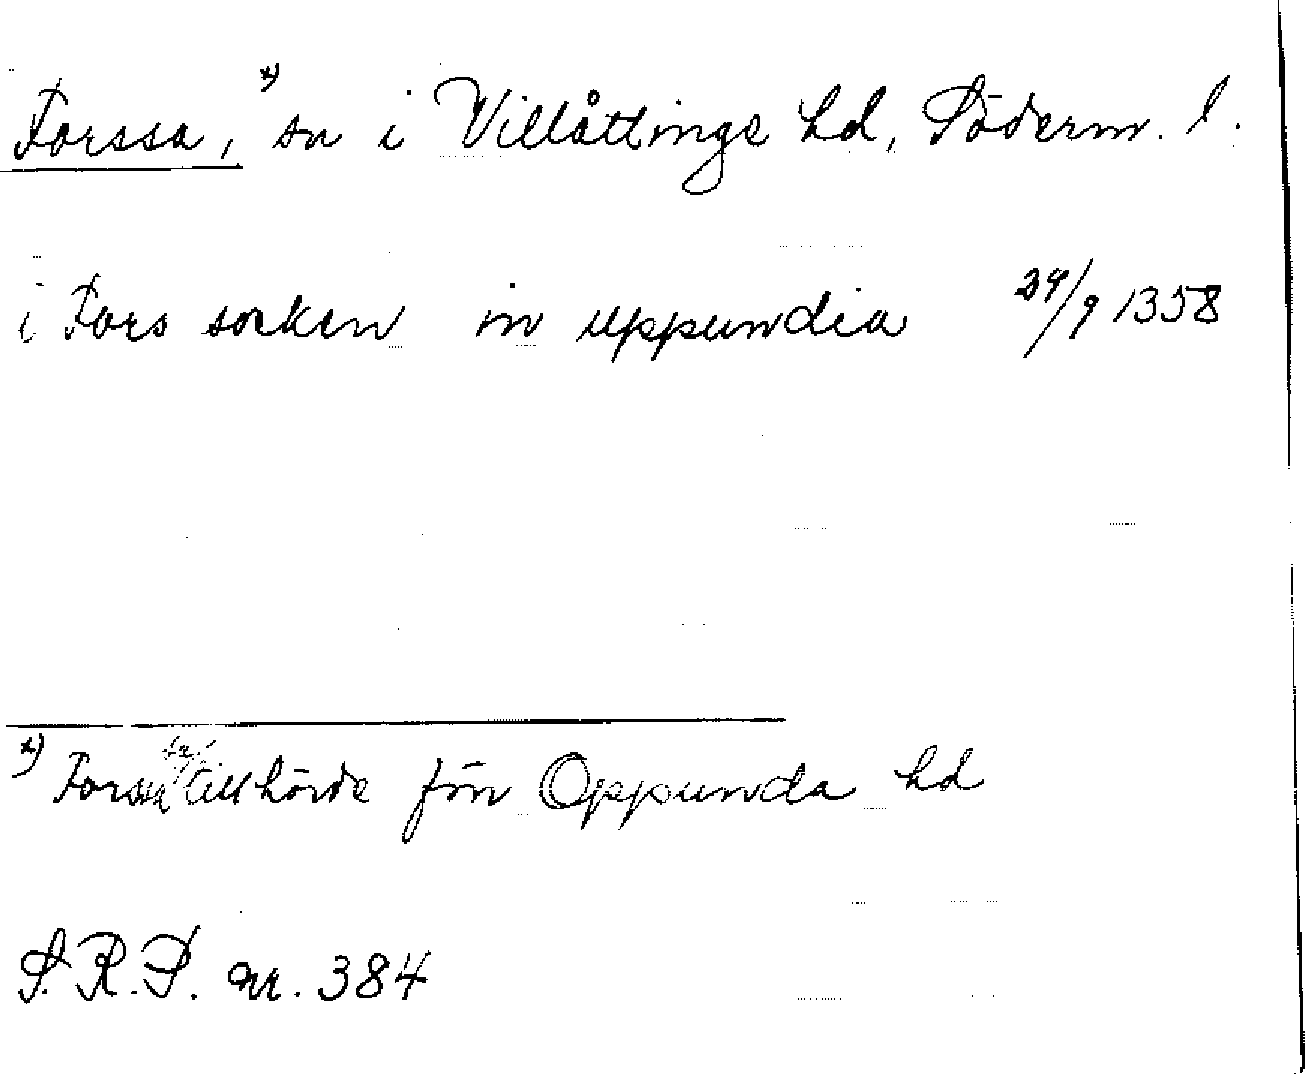 Forssa, x) sn i Villåttinge hd, Söderm. l.
i Fors sorken in uppundia 24/9 1358
x) Forssa sn tillhörde förr Oppunda hd
S.R.P. nr. 384